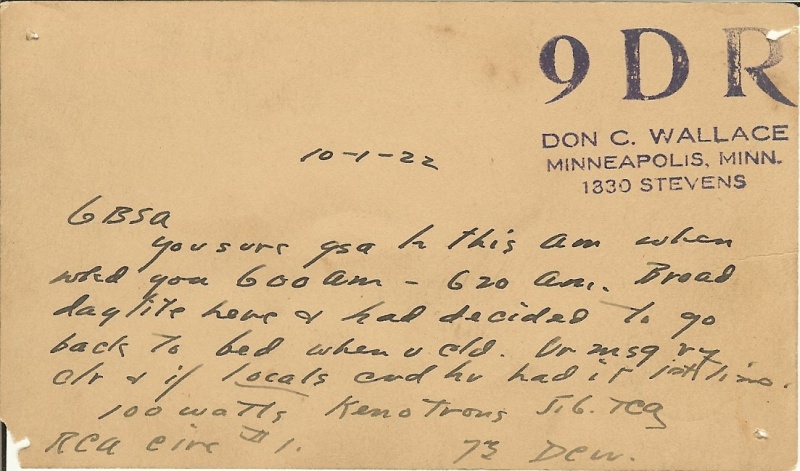 9DR
DON C. WALLACE
MINNEAPOLIS, MINN.
1330 STEVENS
10-1-22
6BSA
You sure qsa hr this am when
wkd you 600 am - 620 am. Broad
daylite here & had decided to go
back to bed when u cld. Ur msg vy
clr & if locals cnd hv had it 1st time.
100 watts Kenotrons
RCA circ #1. 73 DCW.